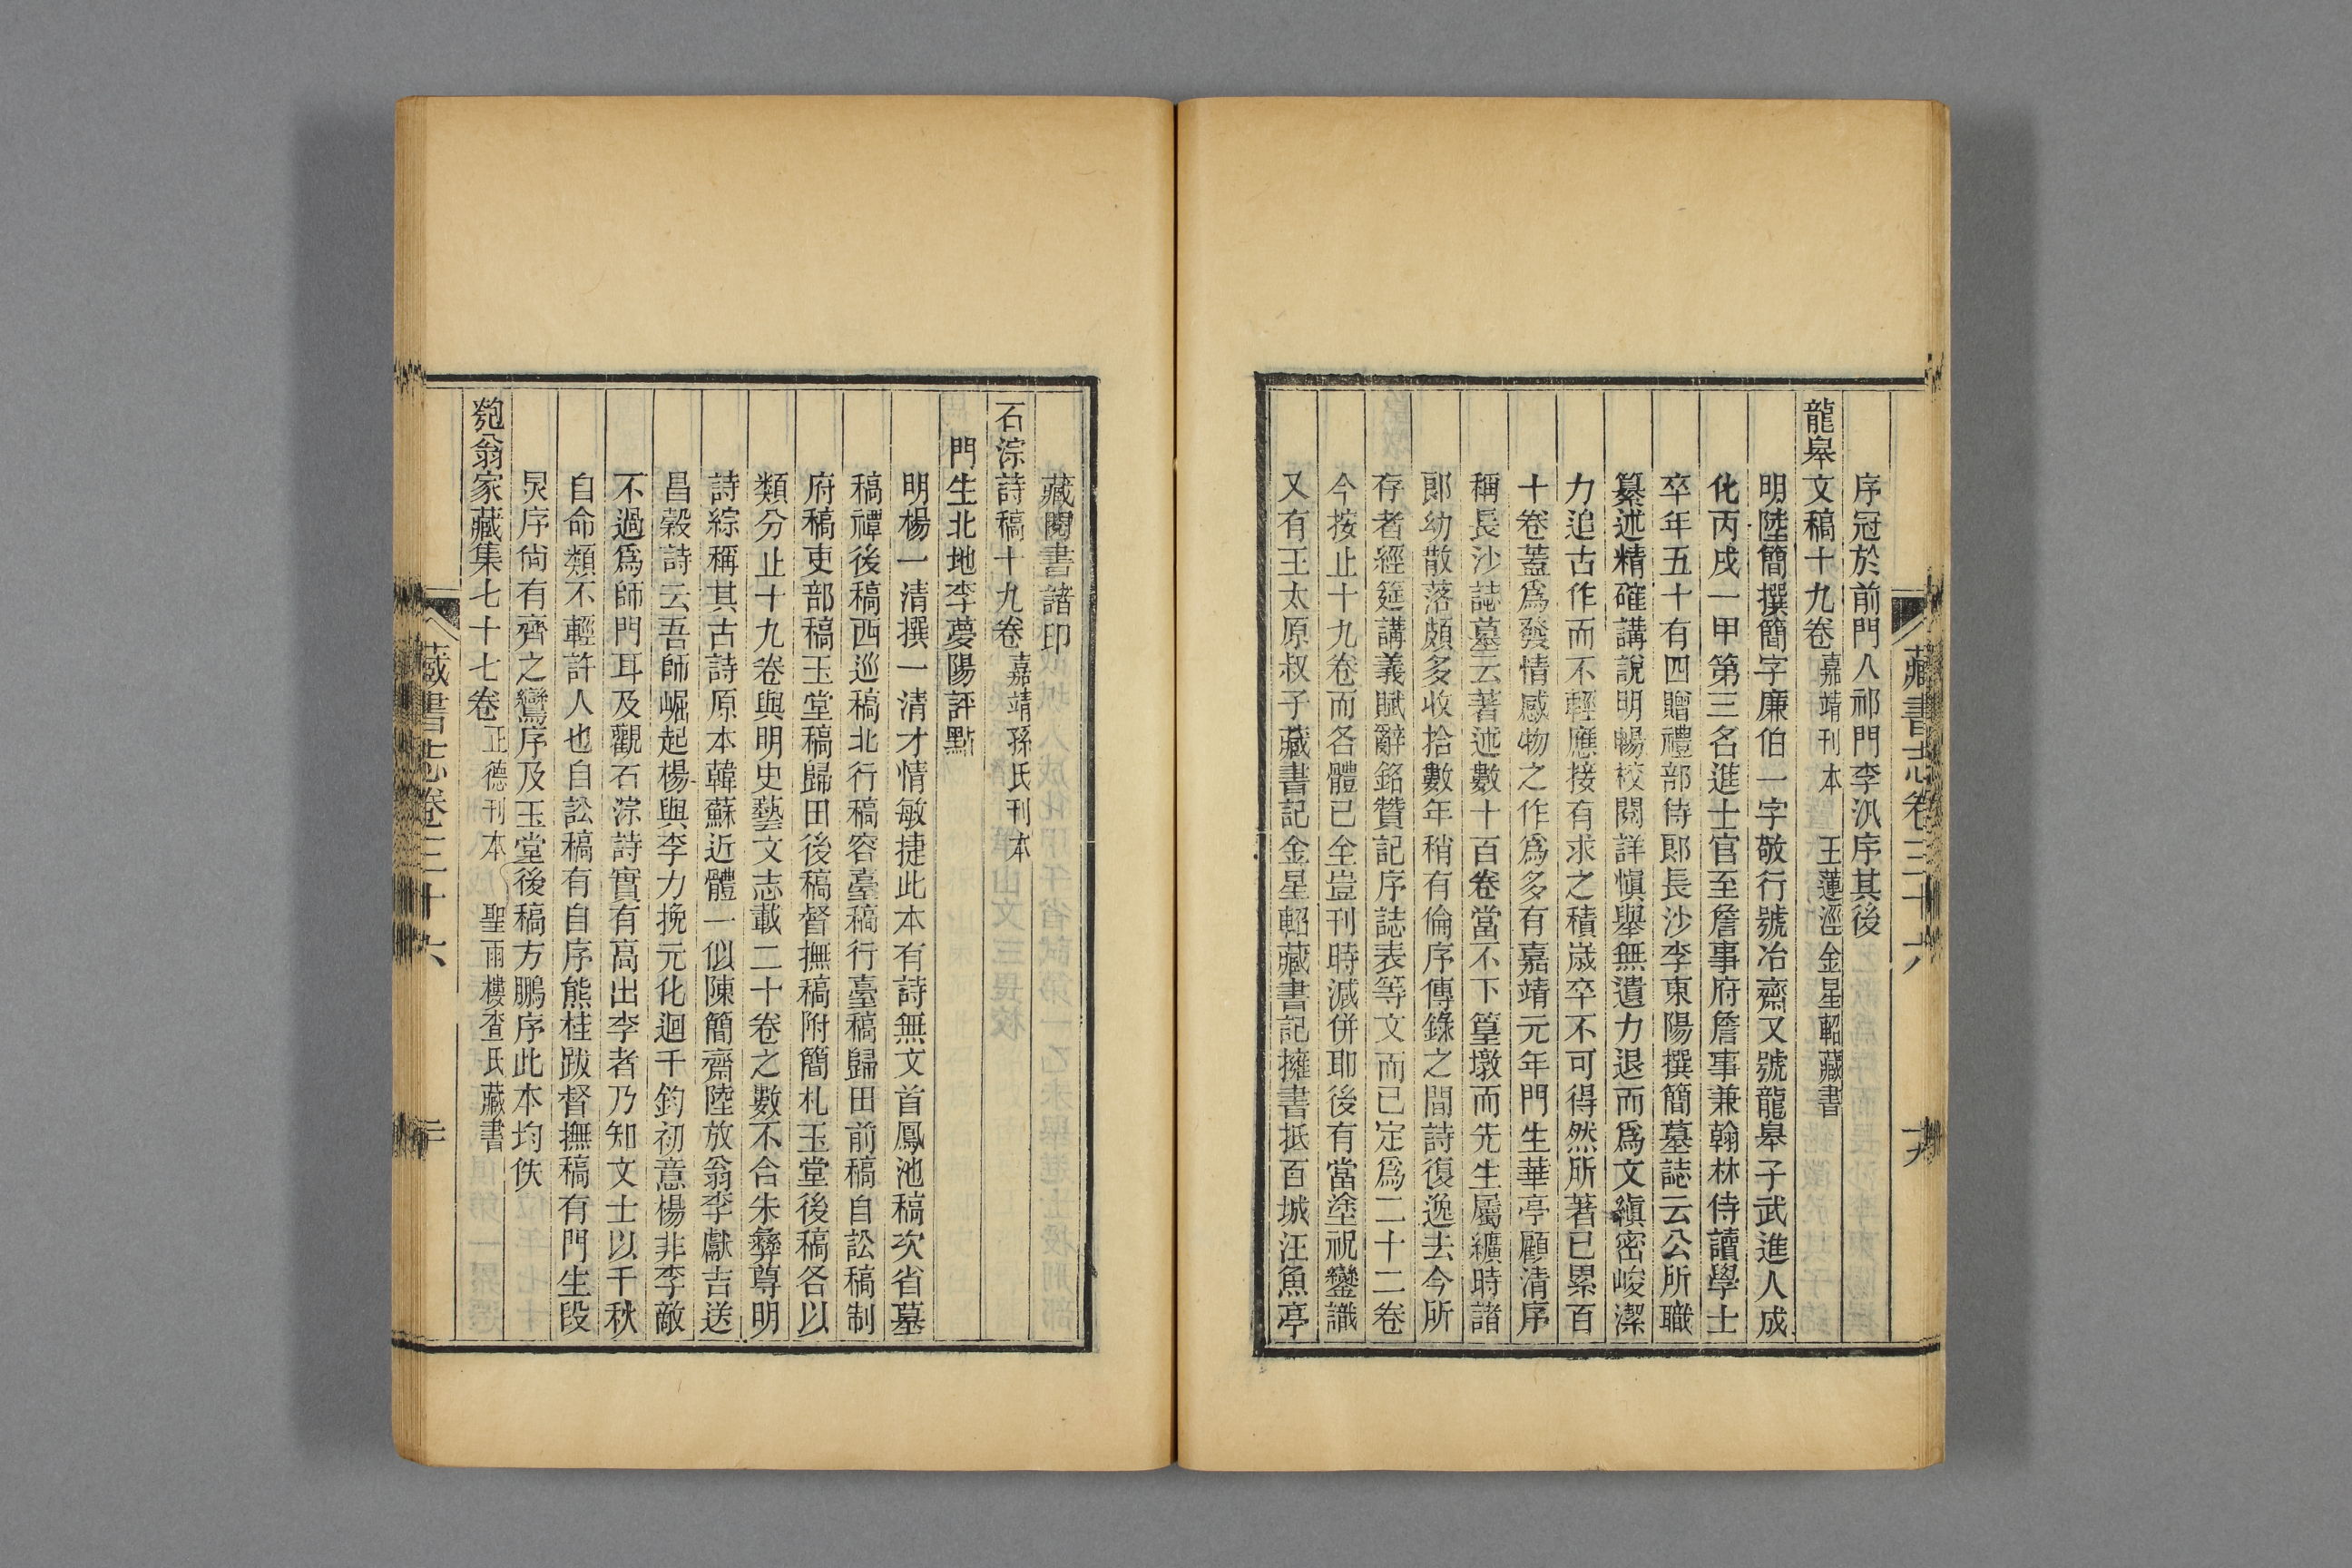 藏書志卷三十六
十九
序冠於前門人祁門李汎序其後
龍皋文稿十九卷嘉靖刊本 王蓮涇金星軺藏書
明陸簡撰簡字廉伯一字敬行號冶齋又號龍皋子武進人成
化丙戌一甲第三名進士官至詹事府詹事兼翰林侍讀學士
卒年五十有四贈禮部侍郞長沙李東陽撰簡墓誌云公所職
纂述精確講說明暢校閱詳愼舉無遺力退而爲文縝密峻潔
力追古作而不輕應接有求之積歲卒不可得然所著已累百
十卷蓋爲發情感物之作爲多有嘉靖元年門生華亭顧清序
稱長沙誌墓云著述數十百卷當不下篁墩而先生屬纊時諸
郞幼散落頗多收拾數年稍有倫序傳錄之間詩復逸去今所
存者經筵講義賦辭銘贊記序誌表等文而已定爲二十二卷
今按止十九卷而各體已全豈刊時減併耶後有當塗祝鑾識
又有王太原叔子藏書記金星軺藏書記擁書抵百城汪魚亭
藏閱書諸印
石淙詩稿十九卷嘉靖孫氏刊本
門生北地李夢陽評點
明楊一清撰一清才情敏捷此本有詩無文首鳳池稿次省墓
稿禫後稿西巡稿北行稿容臺稿行臺稿歸田前稿自訟稿制
府稿吏部稿玉堂稿歸田後稿督撫稿附簡札玉堂後稿各以
類分止十九卷與明史藝文志載二十卷之數不合朱彝尊明
詩綜稱其古詩原本韓蘇近體一似陳簡齋陸放翁李獻吉送
昌穀詩云吾師崛起楊與李力挽元化迴千鈞初意楊非李敵
不過爲師門耳及觀石淙詩實有高出李者乃知文士以千秋
自命類不輕許人也自訟稿有自序熊桂跋督撫稿有門生段
炅序尙有齊之鸞序及玉堂後稿方鵬序此本均佚
匏翁家藏集七十七卷正德刊本 聖雨樓查氏藏書
藏書志卷三十六
二十